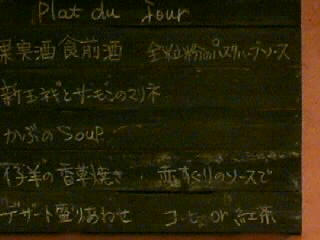 Plat du Jour
果実酒 食前酒 全粒粉のパスタ
新玉ネギとサーモンのマリネ
かぶの Soup
仔羊の香草焼き 赤すぐりのソースで
デザート盛りあわせ コーヒー or 紅茶